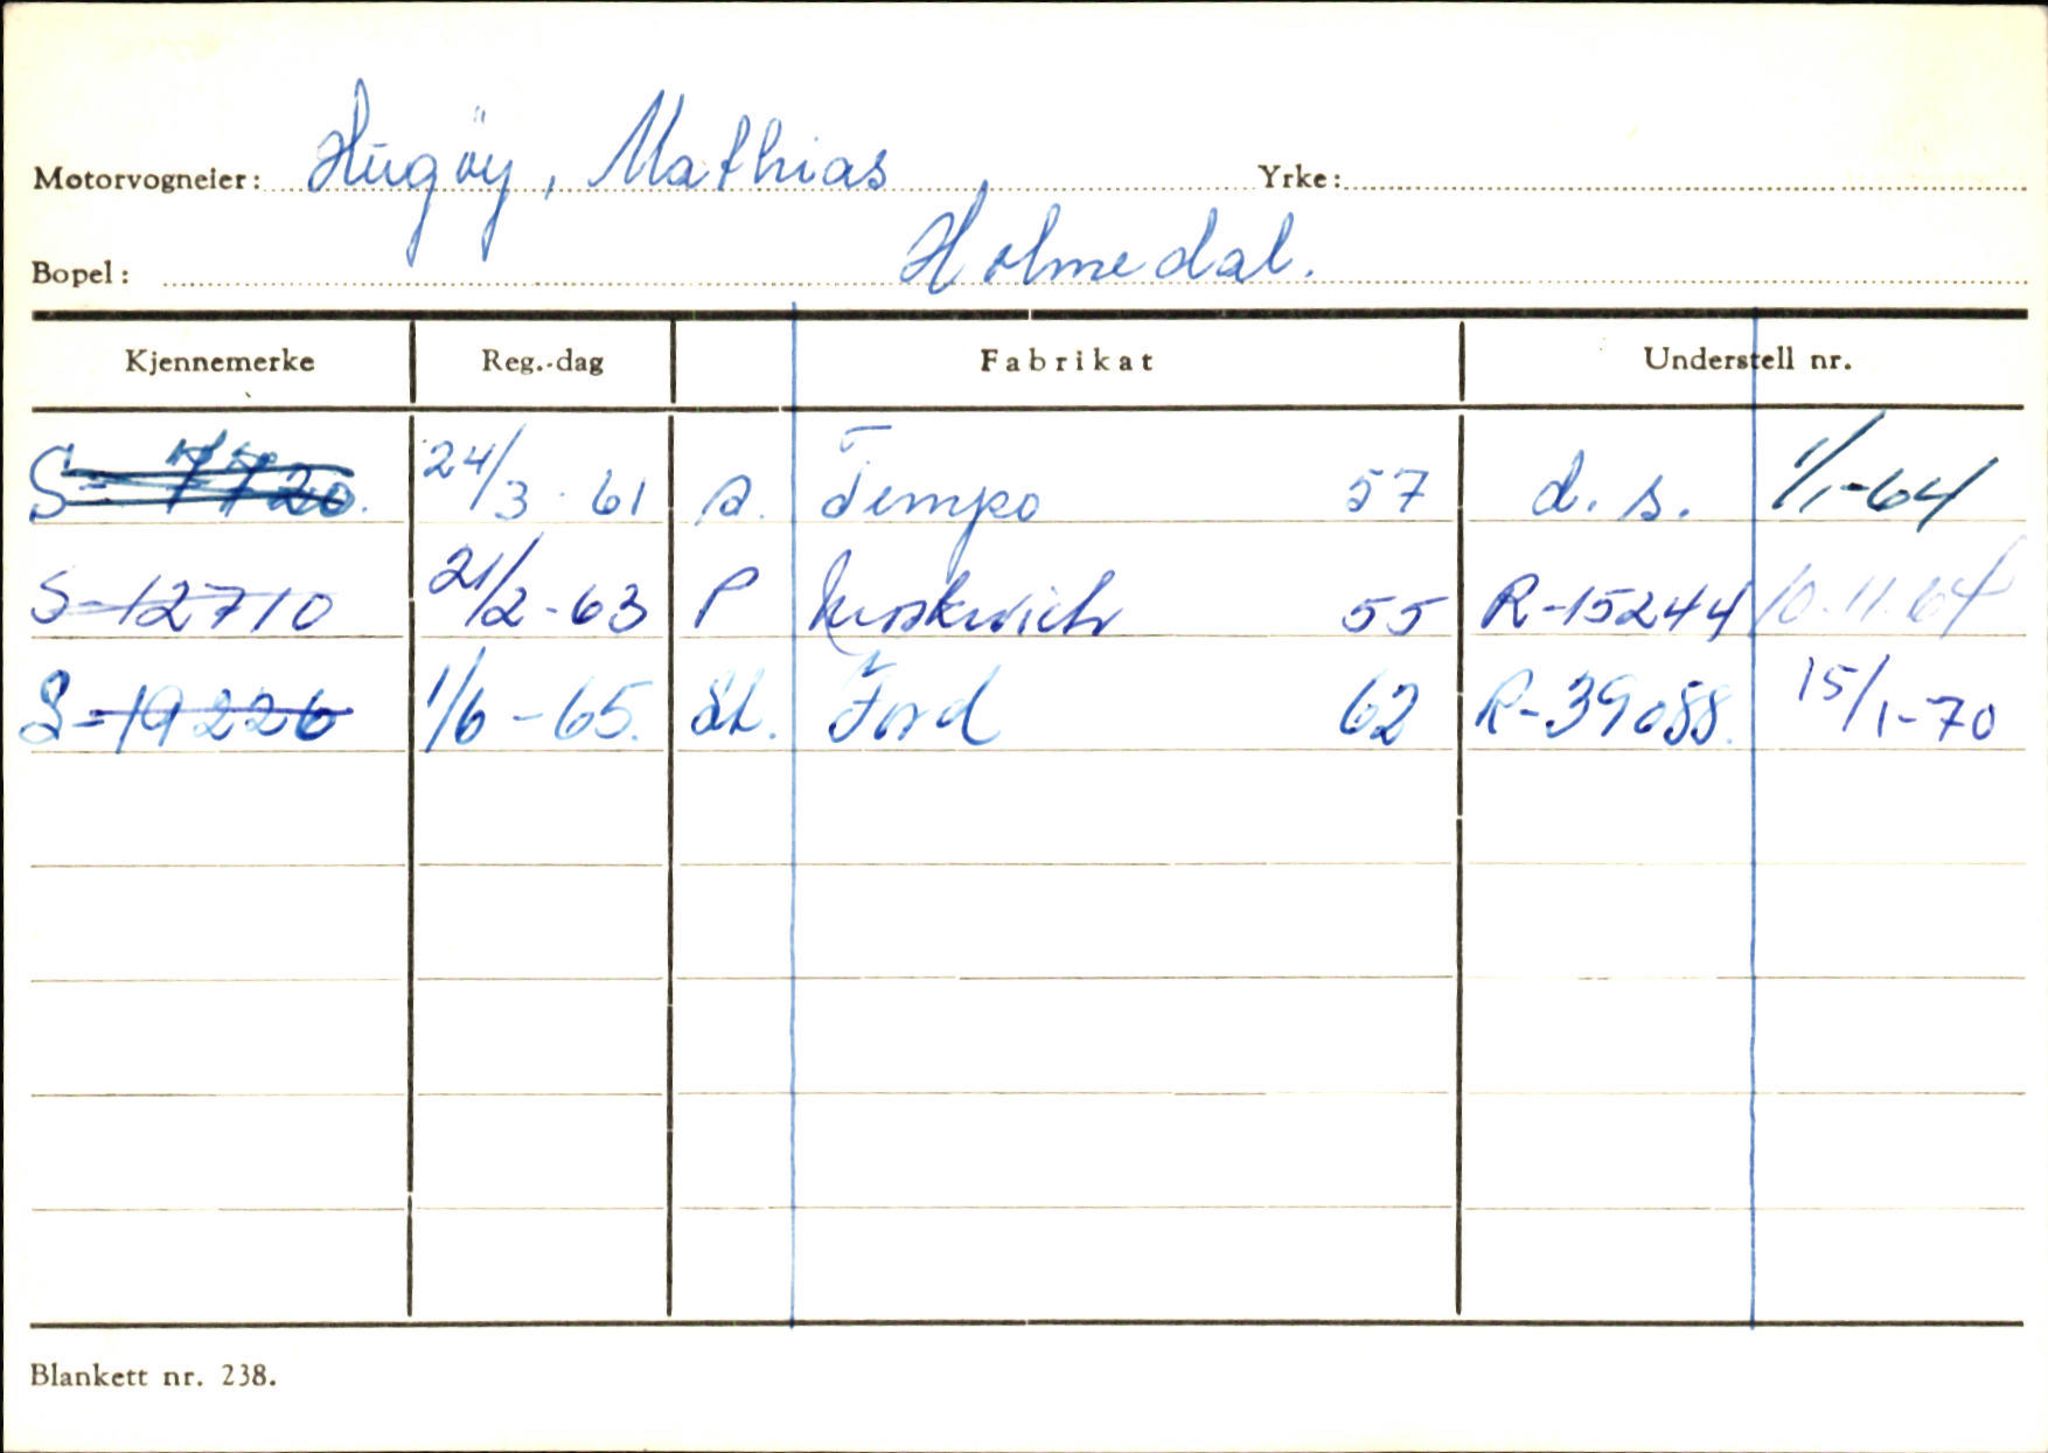 Motorvogneier: Hugøy, Mathias Yrke:
Bopel: Holmedal.
Kjennemerke Reg.-dag Fabrikat Understell nr.
S-7720. 24/3-61 Tempo 57 d. s. 1/1-64
S-12710 21/2-63 P Moskwich 55 R-15244 10-11-64
S-19226 1/6-65. St. Ford 62 R-39088. 15/1-70
Blankett nr. 238.